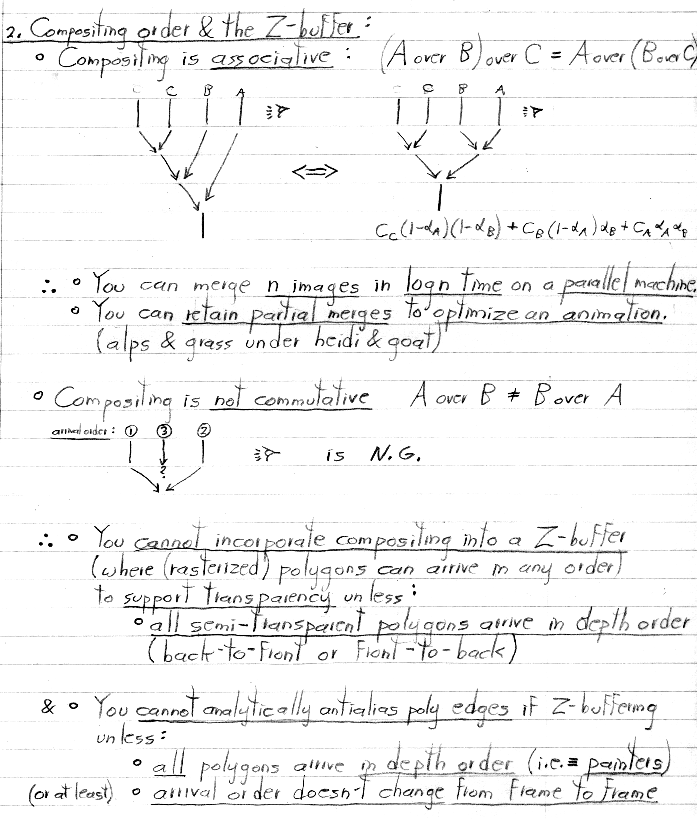 2. Compositing order & the Z-buffer :
∘ Compositing is associative : (A over B) over C = A over (B over C)
C B A C B A
<=>
C_C(1-α_A)(1-α_B) + C_B(1-α_A)α_B + C_A α_A α_B
∴ ∘ You can merge n images in logn time on a parallel machine.
∘ You can retain partial merges to optimize an animation.
(alps & grass under heidi & goat)
∘ Compositing is not commutative A over B ≠ B over A
arrival order : ① ③ ②
? is N.G.
∴ ∘ You cannot incorporate compositing into a Z-buffer
(where (rasterized) polygons can arrive in any order)
to support transparency unless :
∘ all semi-transparent polygons arrive in depth order
(back-to-front or front-to-back)
& ∘ You cannot analytically antialias poly edges if Z-buffering
unless :
∘ all polygons arrive in depth order (i.e. ≡ painters)
(or at least) ∘ arrival order doesn't change from frame to frame